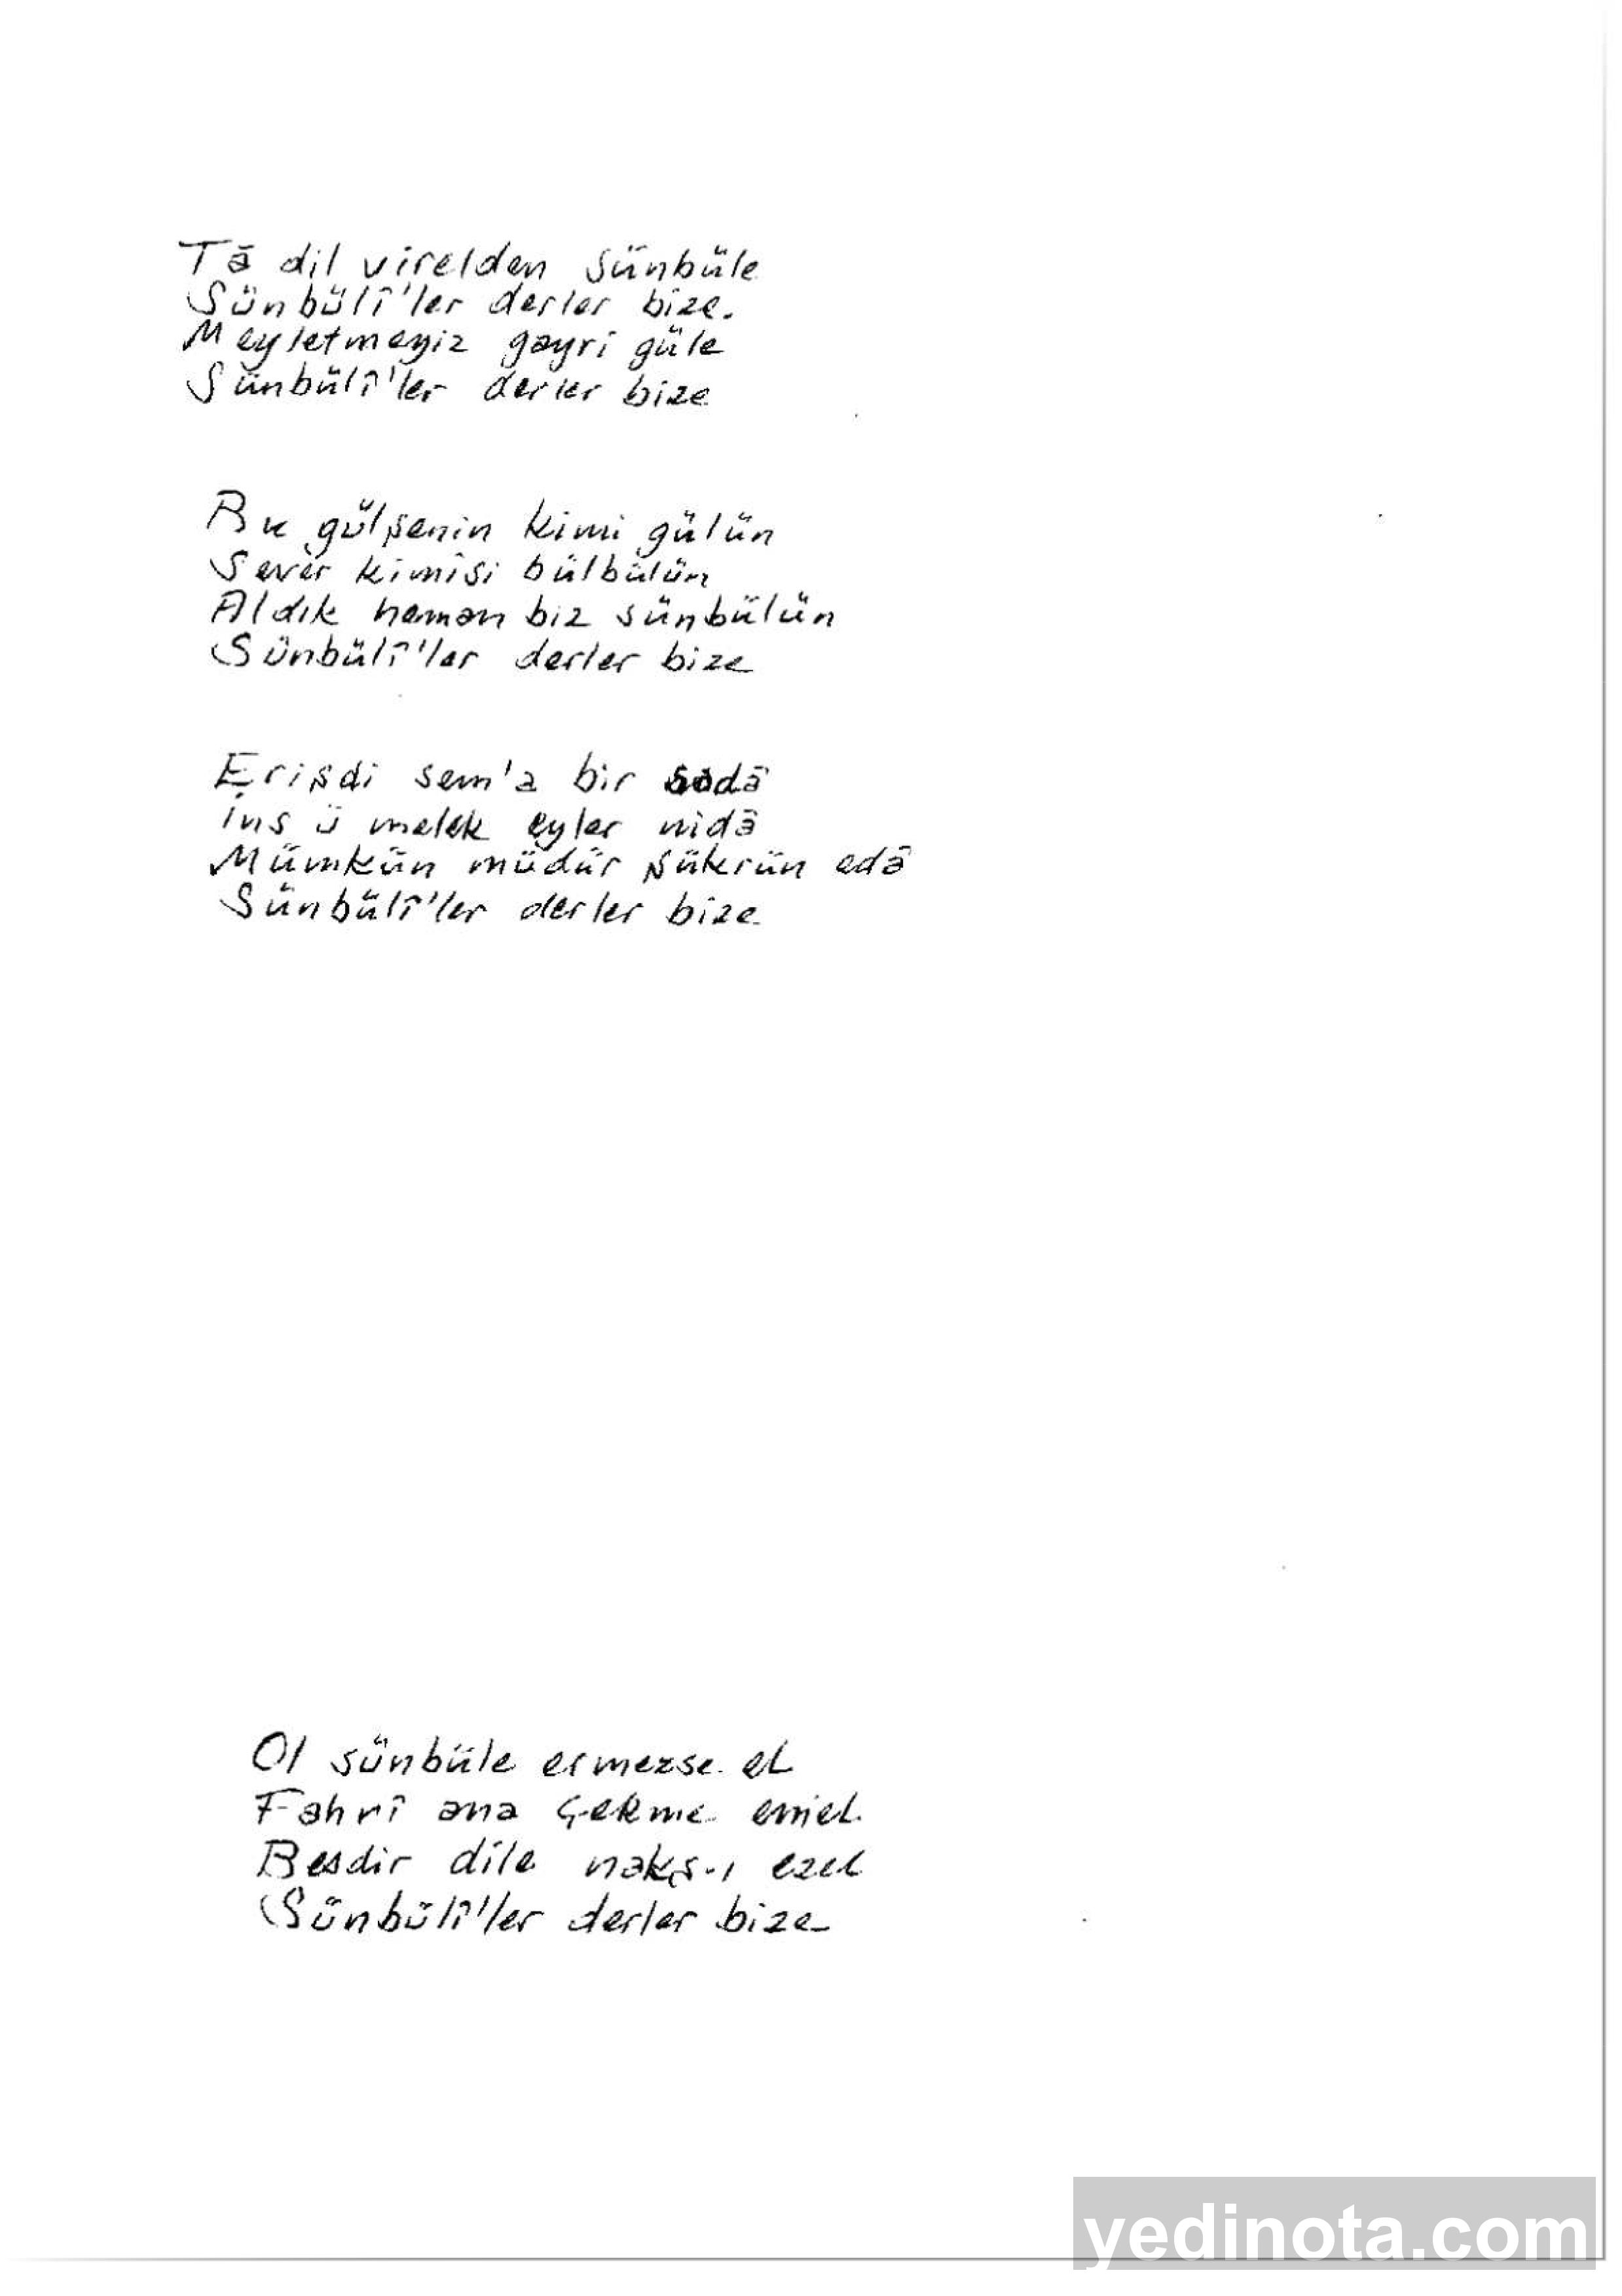 Tā dil virelden sünbüle
Sünbülî'ler derler bize.
Meyletmeyiz gayri güle
Sünbülî'ler derler bize
Bu gülşenin kimi gülün
Sever kimisi bülbülün
Aldık haman biz sünbülün
Sünbülî'ler derler bize
Erişdi sem'a bir sadā
İns ü melek eyler nidā
Mümkün müdür şükrün edā
Sünbülî'ler derler bize
Ol sünbüle ermezse el
Fahrî ana çekme emel
Besdir dile nakş-ı ezel
Sünbülî'ler derler bize
yedinota.com